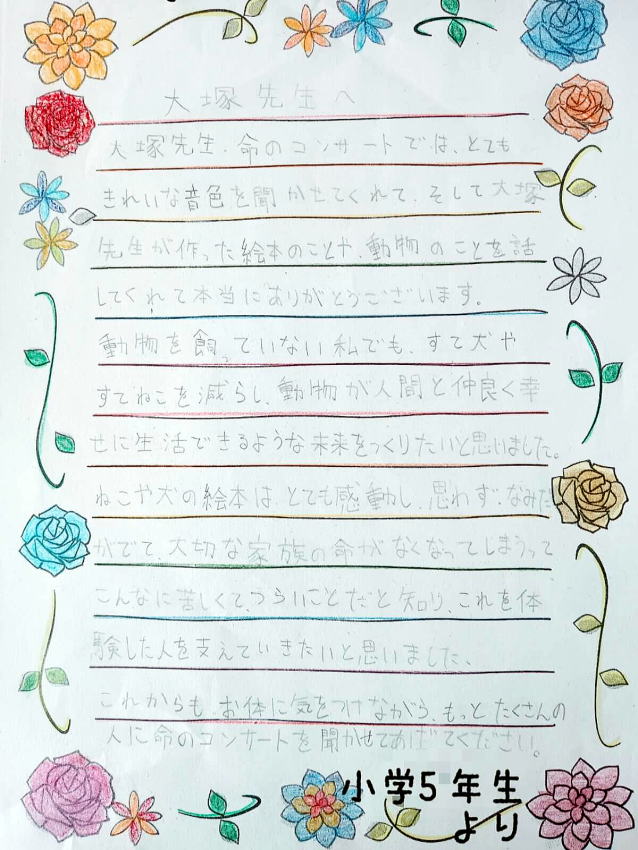 大塚先生へ
大塚先生、命のコンサートでは、とても
きれいな音色を聞かせてくれて、そして大塚
先生が作った絵本のことや、動物のことを話
してくれて本当にありがとうございます。
動物を飼っていない私でも、すて犬や
すてねこを減らし、動物が人間と仲良く幸
せに生活できるような未来をつくりたいと思いました。
ねこや犬の絵本は、とても感動し、思わず、なみだ
がでて、大切な家族の命がなくなってしまうって
こんなに苦しくて、つらいことだと知り、これを体
験した人を支えていきたいと思いました、
これからも、お体に気をつけながら、もっとたくさんの
人に命のコンサートを聞かせてあげてください。
小学5年生
より